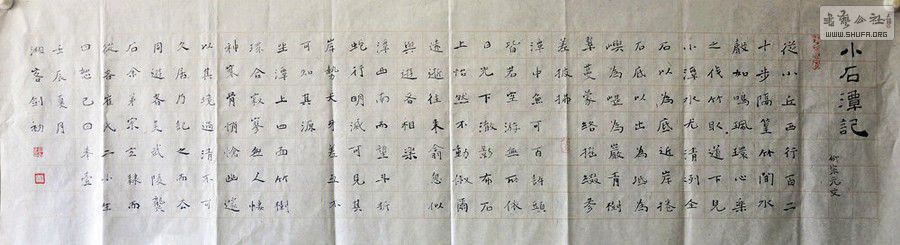 书艺公社
WWW.SHUFA.ORG
小石潭記
柳宗元文
從小丘西行百二
十步隔篁竹聞水
聲如鳴珮環心樂
之伐竹取道下見
小潭水尤清冽全
石以為底近岸捲
石底以出為坻為
嶼為嵁為巖青樹
翠蔓蒙絡搖綴參
差披拂
潭中魚可百許頭
皆若空游無所依
日光下澈影布石
上怡然不動俶爾
遠逝往來翕忽似
與遊者相樂
潭西南而望斗折
蛇行明滅可見其
岸勢犬牙差互不
可知其源
坐潭上四面竹樹
環合寂寥無人悽
神寒骨悄愴幽邃
以其境過清不可
久居乃記之而去
同遊者吳武陵龔
右余弟宗玄隸而
從者崔氏二小生
曰恕己曰奉壹
壬辰夏月
湘客劍初